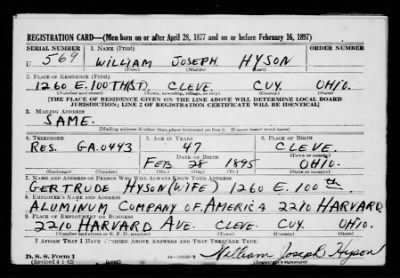 REGISTRATION CARD—(Men born on or after April 28, 1877 and on or before February 16, 1897)
SERIAL NUMBER 1. NAME (Print)
U 569 WILLIAM JOSEPH HYSON
(First) (Middle) (Last)
2. PLACE OF RESIDENCE (Print)
1260 E. 100TH ST, CLEVE. CUY. OHIO.
(Number and street) (Town, township, village, or city) (County) (State)
[THE PLACE OF RESIDENCE GIVEN ON THE LINE ABOVE WILL DETERMINE LOCAL BOARD
JURISDICTION; LINE 2 OF REGISTRATION CERTIFICATE WILL BE IDENTICAL]
3. MAILING ADDRESS
SAME.
[Mailing address if other than place indicated on line 2. If same insert word same]
4. TELEPHONE 5. AGE IN YEARS 6. PLACE OF BIRTH
RES. GA.0443 47 CLEVE.
DATE OF BIRTH (Town or county)
FEB 28 1895 OHIO.
(Mo.) (Day) (Yr.) (State or country)
7. NAME AND ADDRESS OF PERSON WHO WILL ALWAYS KNOW YOUR ADDRESS
GERTRUDE HYSON (WIFE) 1260 E. 100th
8. EMPLOYER'S NAME AND ADDRESS
ALUMINUM COMPANY OF AMERICA 2210 HARVARD
9. PLACE OF EMPLOYMENT OR BUSINESS
2210 HARVARD AVE. CLEVE. CUY. OHIO.
(Number and street or R. F. D. number) (Town) (County) (State)
I AFFIRM THAT I HAVE VERIFIED ABOVE ANSWERS AND THAT THEY ARE TRUE.
D. S. S. Form 1
(Revised 4-1-42) William Joseph Hyson